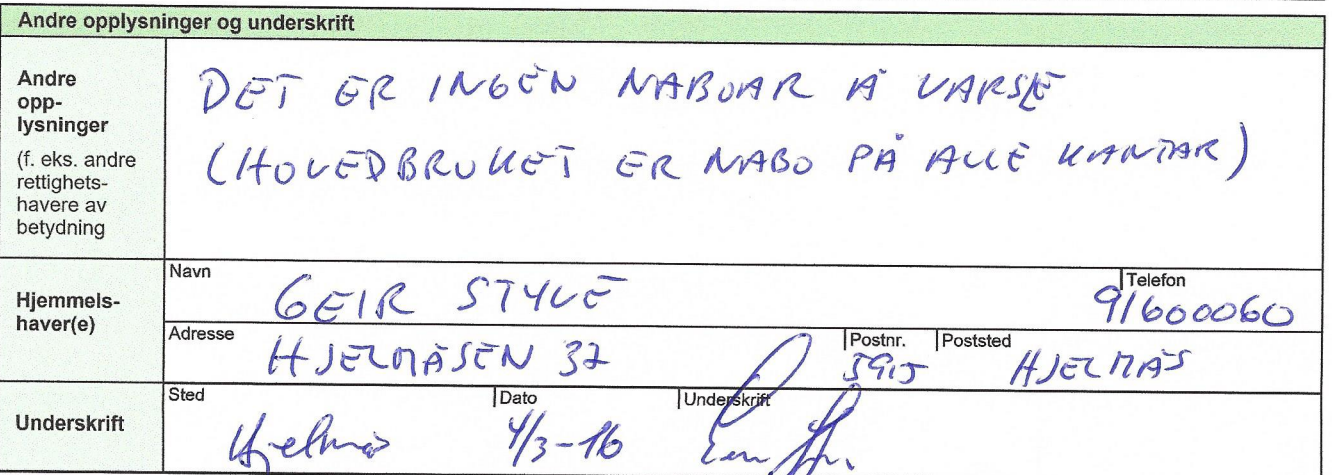 Andre opplysninger og underskrift
Andre
opp-
lysninger
(f. eks. andre
rettighets-
havere av
betydning
DET ER INGEN NABOAR Å VARSLE
(HOVEDBRUKET ER NABO PÅ ALLE KANTAR)
Hjemmels-
haver(e)
Navn
GEIR STYVE
Telefon
91600060
Adresse
HJELMÅSEN 37
Postnr.
5915
Poststed
HJELMÅS
Underskrift
Sted
Hjelmås
Dato
4/3-16
Underskrift